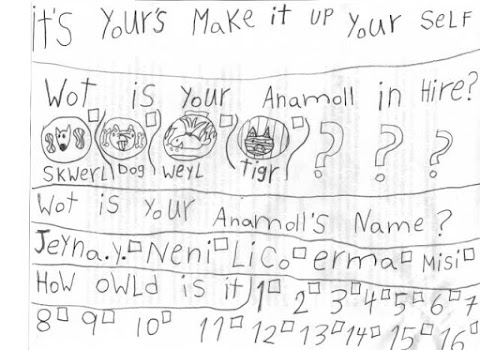 it's Your's Make it up Your SeLF
Wot is Your Anamoll in Hire?
SKWerL Dog WeyL Tigr ? ? ?
Wot is Your Anamoll's Name?
Jeyna.y. Neni Lico erma Misi
How owld is it 1 2 3 4 5 6 7
8 9 10 11 12 13 14 15 16